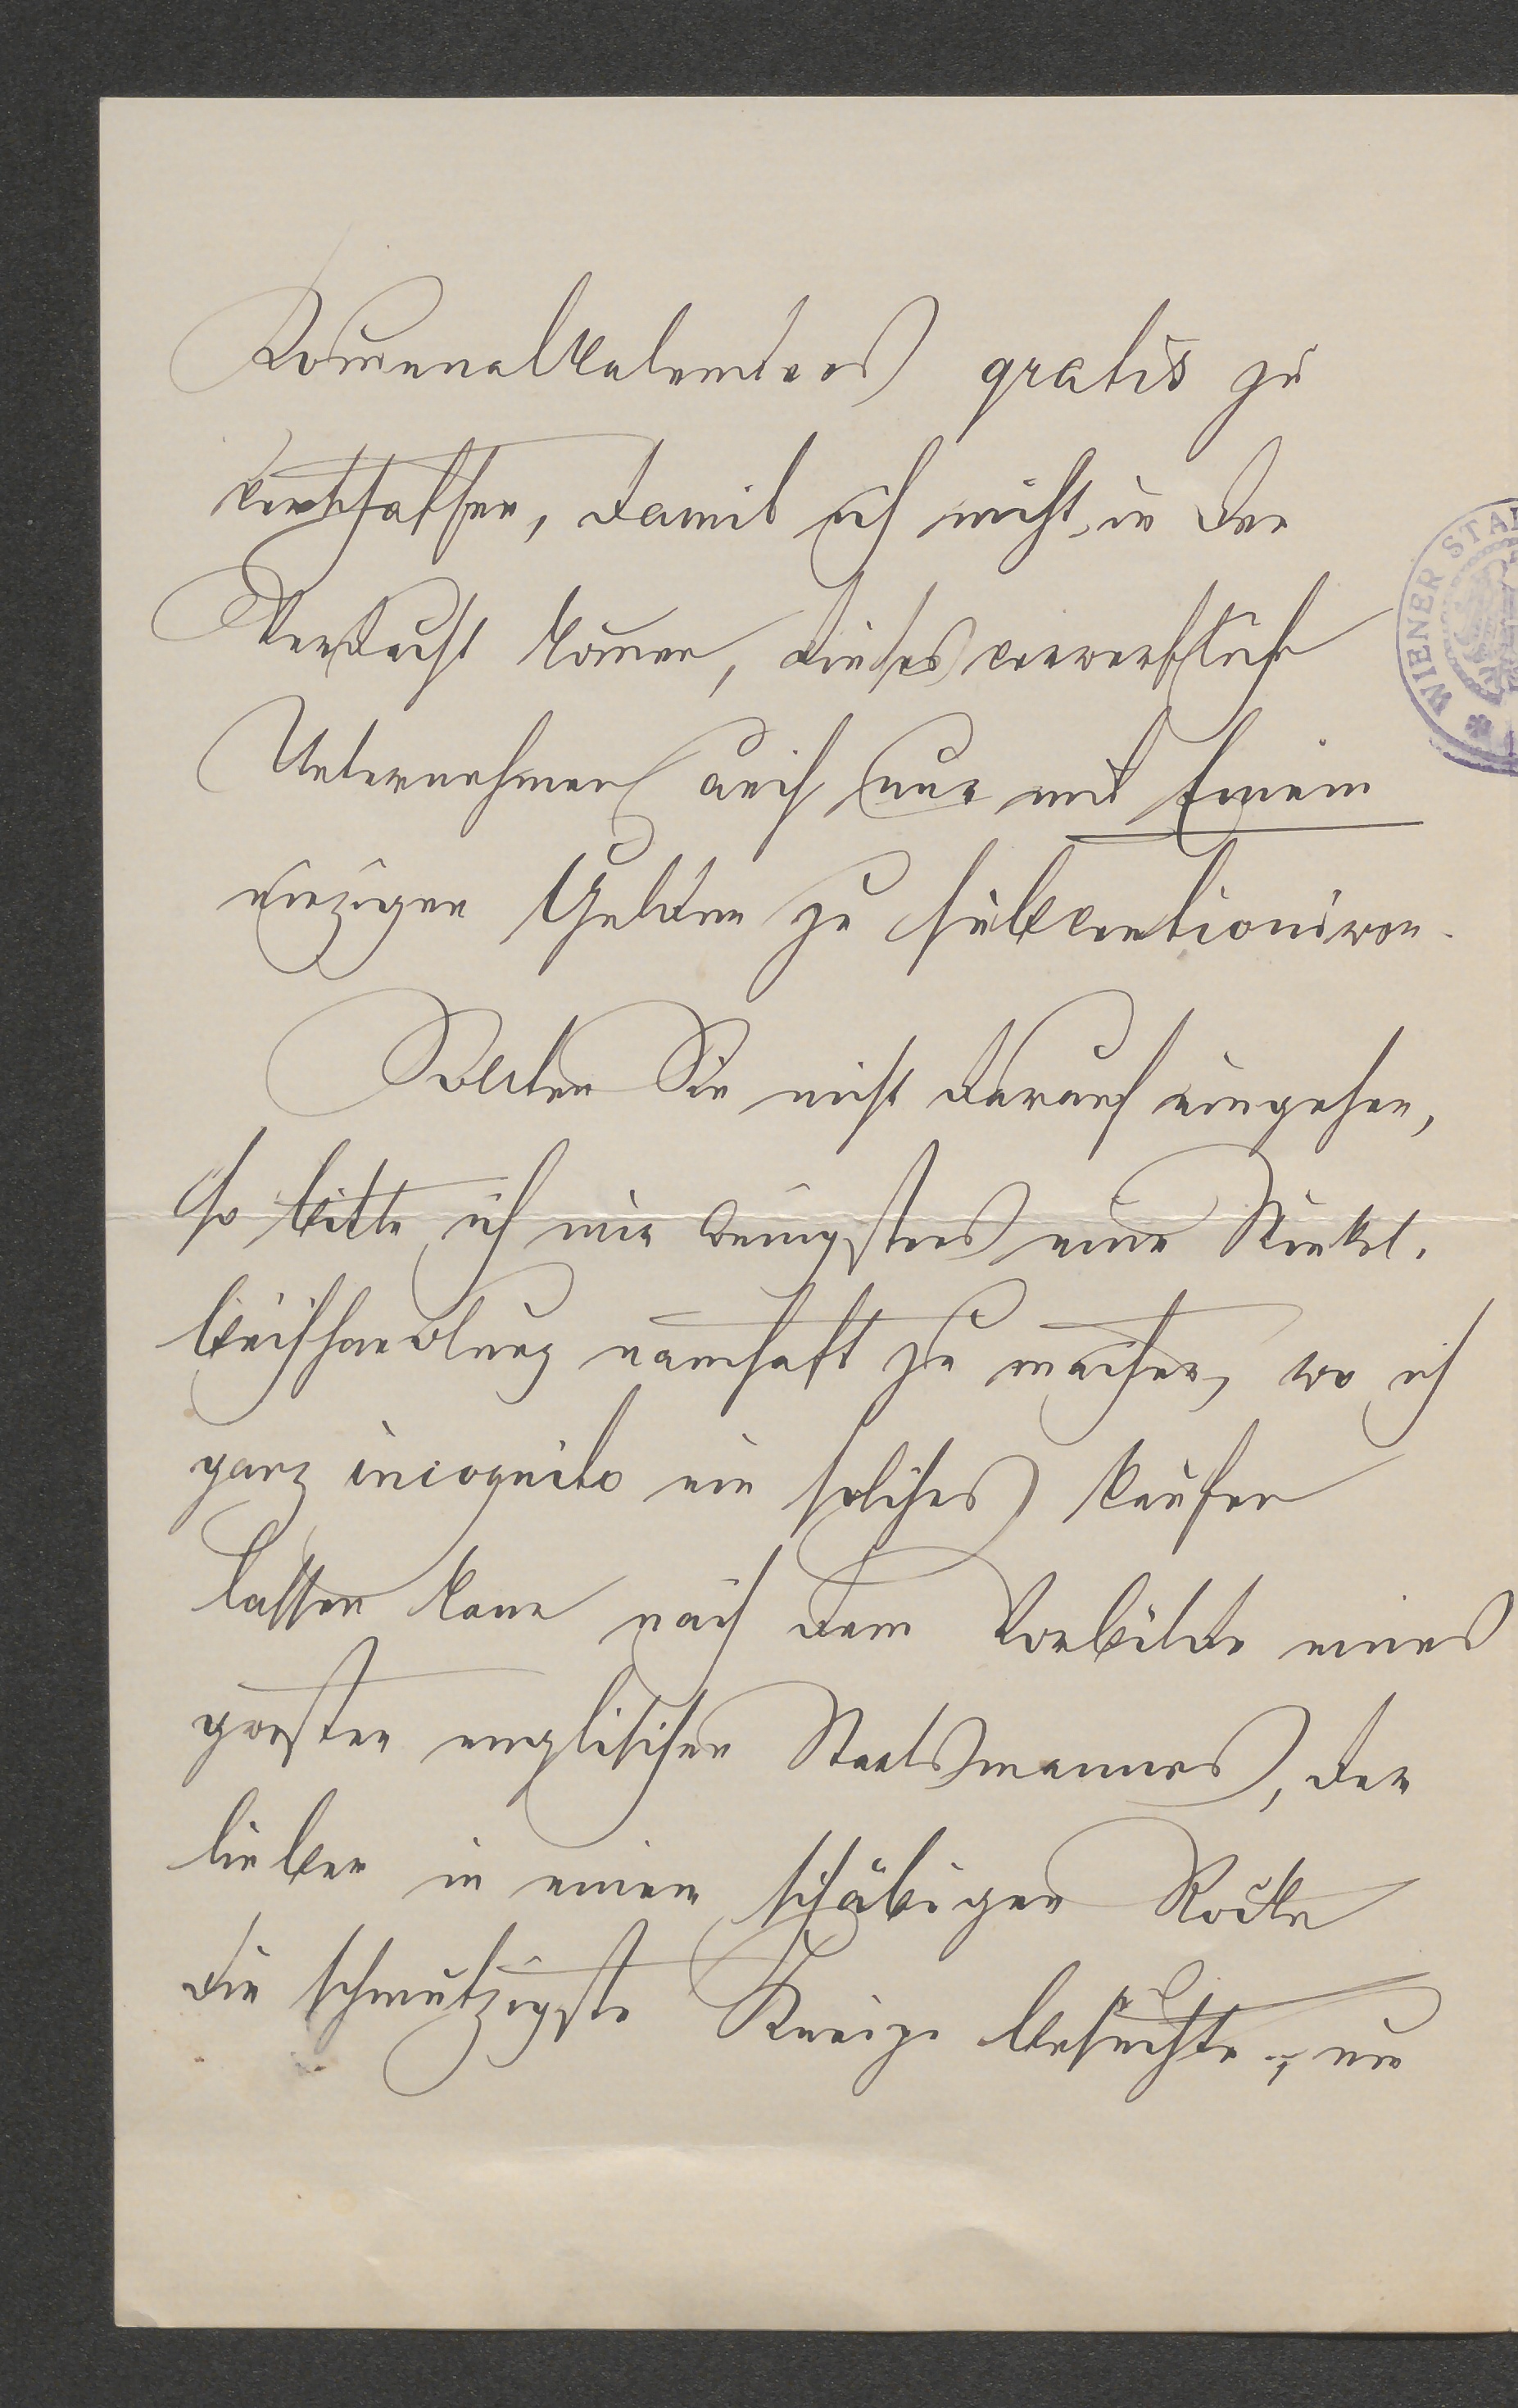 Komunalkalenders gratis zu
verschaffen, damit ich nicht in den
Verdacht komme, dieses verwerfliche
Unternehmen auch nur mit Einem
einzigen Gulden zu subventioniren.
Sollten Sie nicht darauf eingehen,
so bitte ich mir wenigstens eine Winkel-
buchhandlung namhaft zu machen, wo ich
ganz incognito ein solches kaufen
lassen kann nach dem Vorbilde eines
großen englischen Staatsmannes, der
lieber in einem schäbigen Rocke
die schmutzigste Kneipe besuchte, um
WIENER STA